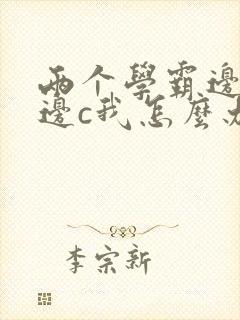 両个學霸邊
邊c我怎麼办
李宗新